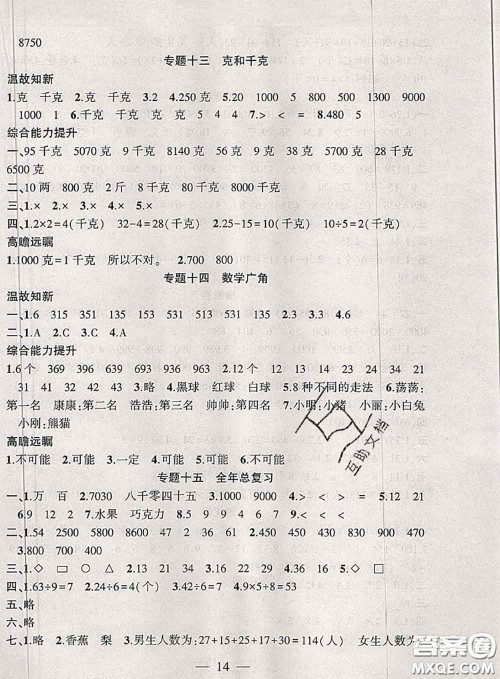 8750
专题十三 克和千克
温故知新
1.克 千克 2.克 千克 3.2 4.250克 5.20 1000 5 800 500 1300 9000
1000 1 6.千克 千克 克 克 千克 克 5 4 4 7.> < = 8.480 5
综合能力提升
一、95千克 5070克 9千克 8140克 56克 9克 38克 57克 28千克
6500克
二、10两 800克 2斤 8千克 2千克 300克
三、1.× 2.× 3.× 4.× 5.×
四、1.2×2=4(千克) 32-4=28(千克) 2.25-15=10(千克) 10÷5=2(千克)
高瞻远瞩
1.1000克=1千克 所以不对。 2.700 800
专题十四 数学广角
温故知新
一、1.6 315 351 135 153 531 513 2.6 3.3 4.6
二、1.A 2.C 3.A
综合能力提升
1.6个 369 396 639 693 936 963 2.12个 12 13 14 23 24 34 21
31 41 32 42 43 3.略 4.黑球 红球 白球 5.8种不同的走法 6.荡荡:
第一名 康康:第二名 浩浩:第三名 帅帅:第四名 7.小明:小猪 小丽:小白兔
小刚:熊猫
高瞻远瞩
1.不可能 2.可能 3.一定 4.可能 5.可能 6.不可能
专题十五 全年总复习
一、1.万 百 2.7030 八千零四十五 3.千克 克 千克 4.> < > = 5.12 21
6.9 12 2 7.水果 巧克力 8.9 9.克 千克 千克 克
二、1.54 2500 5800 8600 67 30 2.450 900 900 5300 1400 500
3.800 700 400
三、1.◇ □ ○ △ 2.○ △ ◇ □ 3.□ ◇ △ ○ 4.△ ○ □ ◇ 5.◇ □
四、1.63÷9=7 2.24÷6=4(个) 3.42÷6=7 4.9×5+8=53
五、略
六、略
七、1.略 2.香蕉 梨 3.男生人数为:27+15+25+17+30=114(人) 女生人数为
— 14 —
互助文档
答案圈
MXQE.COM